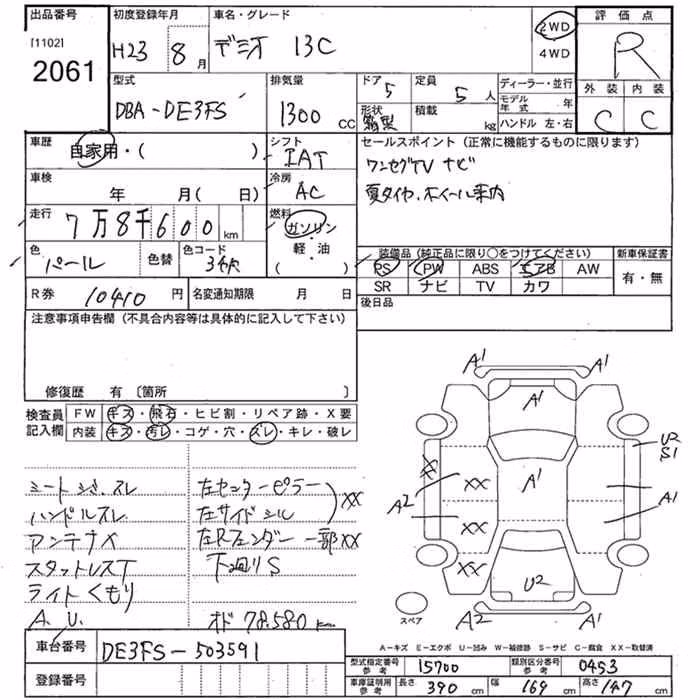 出品番号
[1102]
2061
初度登録年月
H23 8月
車名・グレード
デミオ 13C
2WD
4WD
評価点
R
外装 内装
C C
型式
DBA-DE3FS
排気量
1300 cc
ドア 5
定員 5人
形状
積載 kg
ディーラー・並行
モデル年式 年
ハンドル 左・右
車歴
自家用・( )
シフト
IAT
セールスポイント(正常に機能するものに限ります)
ワンセグTV ナビ
夏タイヤ.ホイール車内
車検
年 月( 日)
冷房
AC
走行
7万8千600km
燃料
ガソリン
軽・油
( )
色
パール
色替
色コード
34K
装備品(純正品に限り○をつけてください)
新車保証書
PS PW ABS エアB AW
有・無
SR ナビ TV カワ
R券 10410円
名変通知期限 月 日
後日品
注意事項申告欄(不具合内容等は具体的に記入して下さい)
修復歴 有〔箇所 〕
検査員記入欄
FW キズ・飛石・ヒビ割・リペア跡・X要
内装 キズ・汚レ・コゲ・穴・スレ・キレ・破レ
シートシミ.スレ
ハンドルスレ
アンテナX
スタットレスT
ライトくもり
A.U.
左センターピラー
左サイドシル
XX
左Rフェンダー 一部XX
下廻りS
オド 78.580km
A1
A1
A1
U2
S1
X
XX
A1
A2
A1
XX
XX
U2
A2
A1
スペア
A-キズ E-エクボ U-凹み W-補修跡 S-サビ C-腐食 XX-取替済
車台番号
DE3FS-503591
登録番号
型式指定番号 参考
15700
類別区分番号 参考
0453
車庫証明用 参考
長さ 390 cm
幅 169 cm
高さ 147 cm